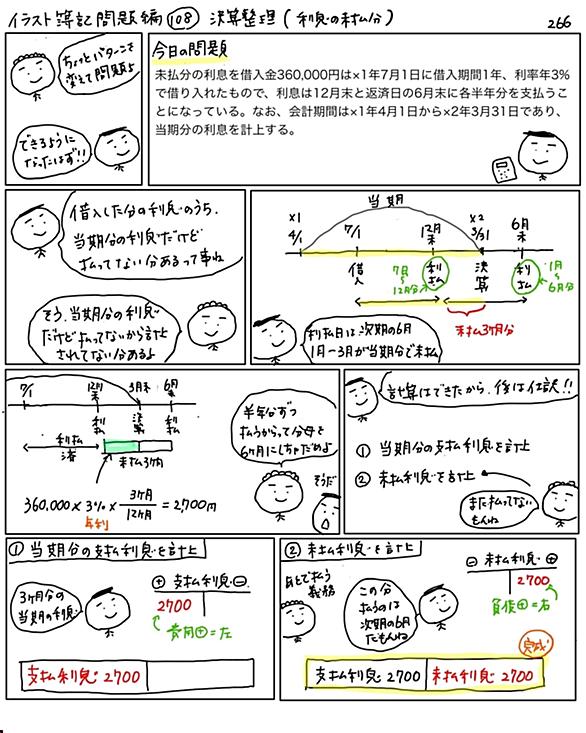 イラスト簿記問題編 108 決算整理(利息の未払分)
266
ちょっとパターンを
変えて問題よ
できるように
なったはず!!
今日の問題
未払分の利息を借入金360,000円は×1年7月1日に借入期間1年、利率年3%
で借り入れたもので、利息は12月末と返済日の6月末に各半年分を支払うこ
とになっている。なお、会計期間は×1年4月1日から×2年3月31日であり、
当期分の利息を計上する。
借入した分の利息のうち、
当期分の利息だけど
払ってない分あるって事ね
そう、当期分の利息
だけど払ってないから計上
されてない分あるよ
当期
×1
4/1
7/1
12月
末
×2
3/31
6月
末
借入
7月
〜
12月分
利払
決算
利払
1月
〜
6月分
未払3ヶ月分
利払日は次期の6月
1月〜3月が当期分で未払
7/1
12月
末
3月末
6月
末
利払
決算
利払
利払
済
未払3ヶ月
360,000 × 3% × 3ヶ月/12ヶ月 = 2,700円
年利
半年分ずつ
払うからって分母を
6ヶ月にしちゃだめよ
そうだ
計算はできたから、後は仕訳!!
① 当期分の支払利息を計上
② 未払利息を計上
まだ払ってない
もんね
① 当期分の支払利息を計上
3ヶ月分の
当期の利息
⊕ 支払利息 ⊖
2700
費用⊕=左
支払利息 2700
② 未払利息を計上
あとで払う
義務
この分
払うのは
次期の6月
だもんね
⊖ 未払利息 ⊕
2700
負債⊕=右
完成
支払利息 2700 未払利息 2700